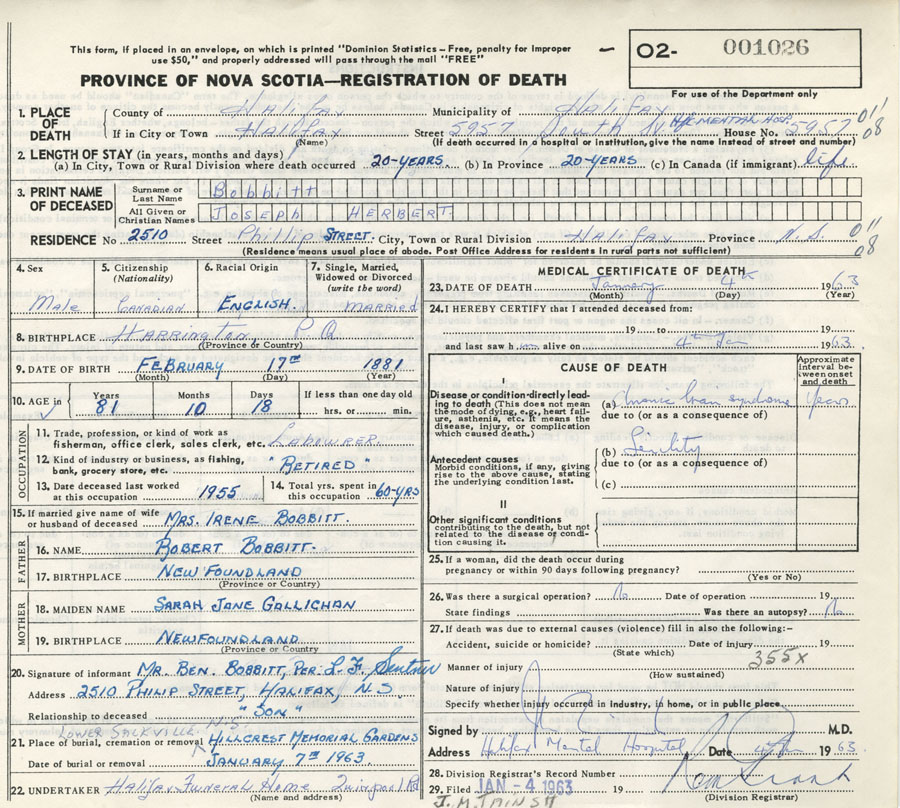 This form, if placed in an envelope, on which is printed "Dominion Statistics – Free, penalty for improper
use $50," and properly addressed will pass through the mail "FREE"
PROVINCE OF NOVA SCOTIA—REGISTRATION OF DEATH
O2- 001026
For use of the Department only
1. PLACE OF DEATH
County of Halifax Municipality of Halifax
If in City or Town Halifax Street 5957 South St House No. 5957
(Name) (If death occurred in a hospital or institution, give the name instead of street and number)
011
08
2. LENGTH OF STAY (in years, months and days)
(a) In City, Town or Rural Division where death occurred 20-YEARS (b) In Province 20-YEARS (c) In Canada (if immigrant) life
3. PRINT NAME OF DECEASED
Surname or Last Name Bobbitt
All Given or Christian Names JOSEPH HERBERT
RESIDENCE No 2510 Street Phillip STREET. City, Town or Rural Division Halifax Province N.S.
(Residence means usual place of abode. Post Office Address for residents in rural parts not sufficient)
011
08
4. Sex Male
5. Citizenship (Nationality) Canadian
6. Racial Origin ENGLISH.
7. Single, Married, Widowed or Divorced (write the word) married
8. BIRTHPLACE Harrington, P.Q.
(Province or Country)
9. DATE OF BIRTH FEBRUARY 17TH 1881
(Month) (Day) (Year)
10. AGE in Years 81 Months 10 Days 18 If less than one day old
hrs. or min.
OCCUPATION
11. Trade, profession, or kind of work as
fisherman, office clerk, sales clerk, etc. Labourer.
12. Kind of industry or business, as fishing,
bank, grocery store, etc. "RETIRED"
13. Date deceased last worked
at this occupation 1955
14. Total yrs. spent in
this occupation 60-YRS
15. If married give name of wife
or husband of deceased MRS. IRENE BOBBITT.
FATHER
16. NAME ROBERT BOBBITT.
17. BIRTHPLACE NEWFOUNDLAND
(Province or Country)
MOTHER
18. MAIDEN NAME SARAH JANE GALLICHAN
19. BIRTHPLACE NEWFOUNDLAND
(Province or Country
20. Signature of informant MR. BEN. BOBBITT, PER. L.F.
Address 2510 PHILIP STREET, HALIFAX, N.S.
Relationship to deceased "SON"
LOWER SACKVILLE N.S.
21. Place of burial, cremation or removal HILLCREST MEMORIAL GARDENS
Date of burial or removal JANUARY 7TH 1963.
22. UNDERTAKER Halifax Funeral Home Quinpool Rd
(Name and address)
MEDICAL CERTIFICATE OF DEATH
23. DATE OF DEATH January 4th 1963
(Month) (Day) (Year)
24. I HEREBY CERTIFY that I attended deceased from:
19 to 19
and last saw h im alive on 4th Jan 1963.
CAUSE OF DEATH
Approximate interval between onset and death
I
Disease or condition directly leading to death (This does not mean the mode of dying, e.g., heart failure, asthenia, etc. It means the disease, injury, or complication which caused death.)
(a) Chronic brain syndrome Years
due to (or as a consequence of)
Antecedent causes
Morbid conditions, if any, giving rise to the above cause, stating the underlying condition last.
(b) Senility
due to (or as a consequence of)
(c)
II
Other significant conditions
contributing to the death, but not related to the disease or condition causing it.
25. If a woman, did the death occur during
pregnancy or within 90 days following pregnancy?
(Yes or No)
26. Was there a surgical operation? No Date of operation 19
State findings Was there an autopsy? No
27. If death was due to external causes (violence) fill in also the following:–
Accident, suicide or homicide? Date of injury 19
(State which) 355X
Manner of injury
(How sustained)
Nature of injury
Specify whether injury occurred in industry, in home, or in public place
Signed by M.D.
Address Halifax Mental Hospital Date 4 Jan 1963.
28. Division Registrar's Record Number
29. Filed JAN - 4 1963 19
(Division Registrar)